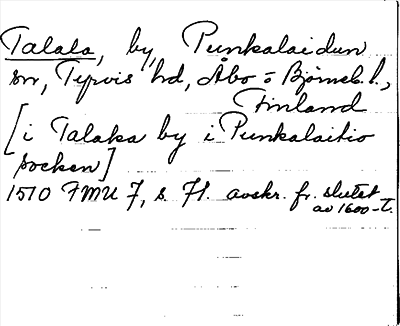 Talala, by, Punkalaidun
sn, Tyrvis hd, Åbo o Björneb. l.,
Finland
[i Talaka by i Punkalaitio
socken]
1510 FMU 7, s. 71. avskr. fr. slutet
av 1600-t.